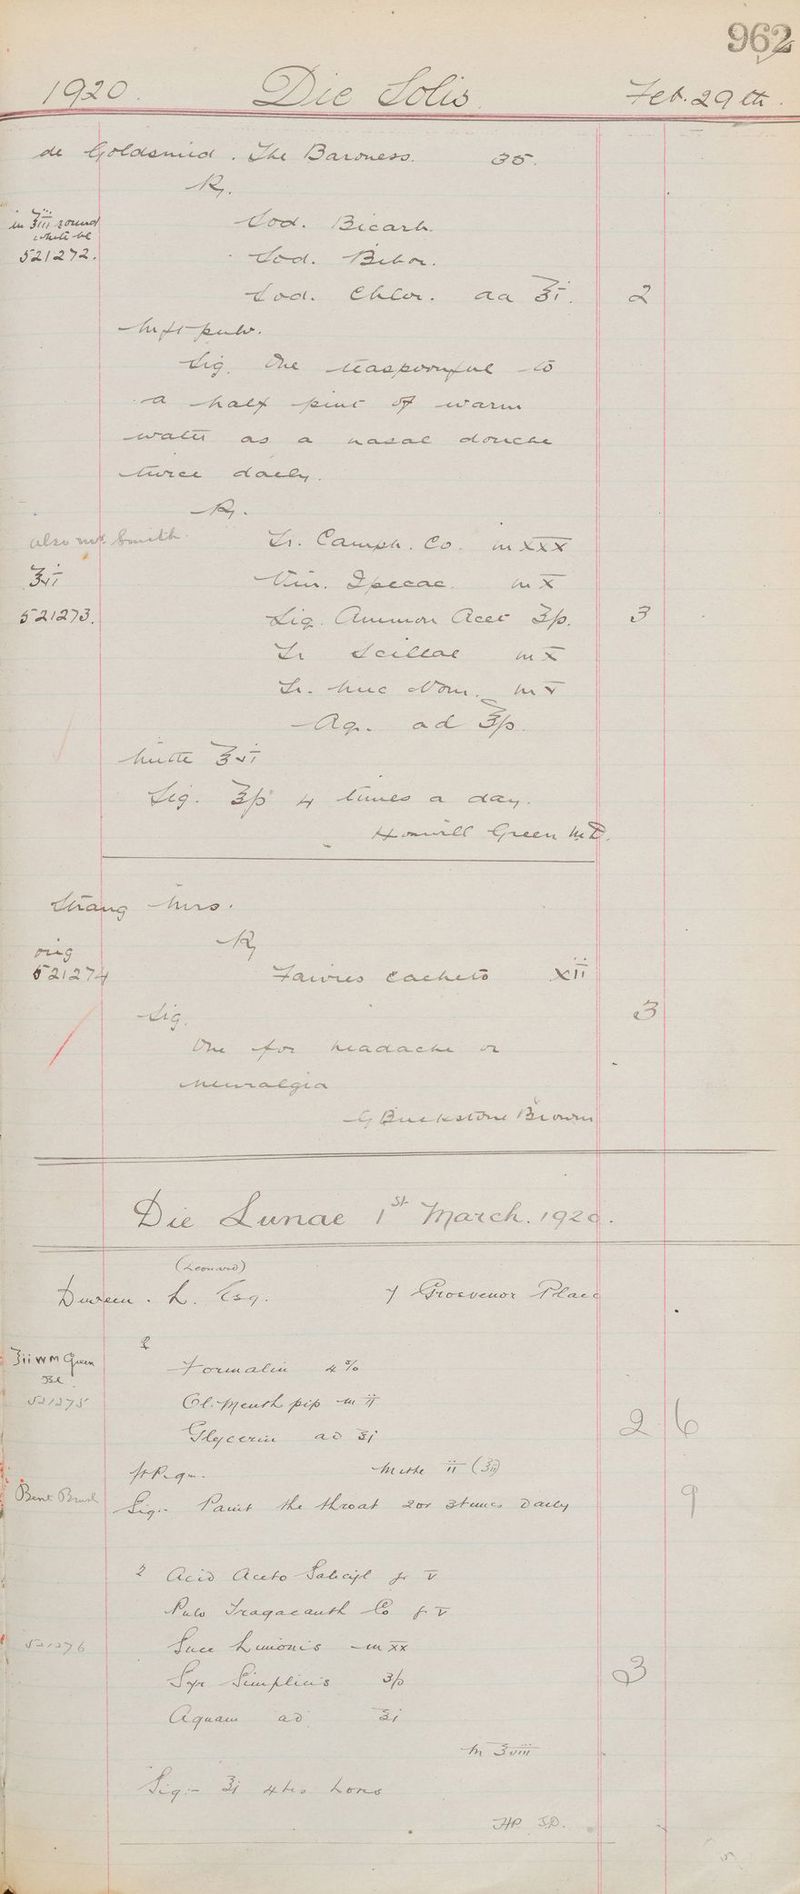 962
1920. Die Solis. Feb. 29th.
de Goldsmid. The Baroness. 35.
℞.
in ℥iii round
white bt
Sod. Bicarb.
521272. Sod. Bibor.
Sod. Chlor. aa ℥i. 2
M ft pulv.
Sig. One teaspoonful to
a half pint of warm
water as a nasal douche
twice daily.
℞.
also Mrs Smith. Tr. Camph. Co. m xxx
℥vi Vin. Ipecac. m x
521273. Liq. Ammon Acet ʒß. 3
Tr Scillae m x
Tr. Nuc Vom. m v
Aq. ad ℥ß.
Mitte ℥vi
Sig. ℥ß 4 times a day.
Green M.D.
Strang Mrs.
orig ℞
521274 Faivres cachets xii
Sig. 3
One for headache or
neuralgia
G Buckstone Brown
Die Lunae 1st March. 1920.
(Leonard)
Duveen. L. Esq. 7 Grosvenor Place
℞
℥ii WM Green
Bt. Formalin 4%
521275 Ol. Menth pip m ii
Glycerin ad ℥i 2 6
ft Pig. Mitte ii (℥ii)
Bent Brush Sig:- Paint the throat 2 or 3 times Daily 9
℞ Acid Aceto Salicyl gr v
Pulv Tragacanth Co gr v
521276 Succ Limonis m xx
Syr Simplicis ʒß 3
Aquam ad ℥i
M ℥viii
Sig:- ℥i 4tis horis